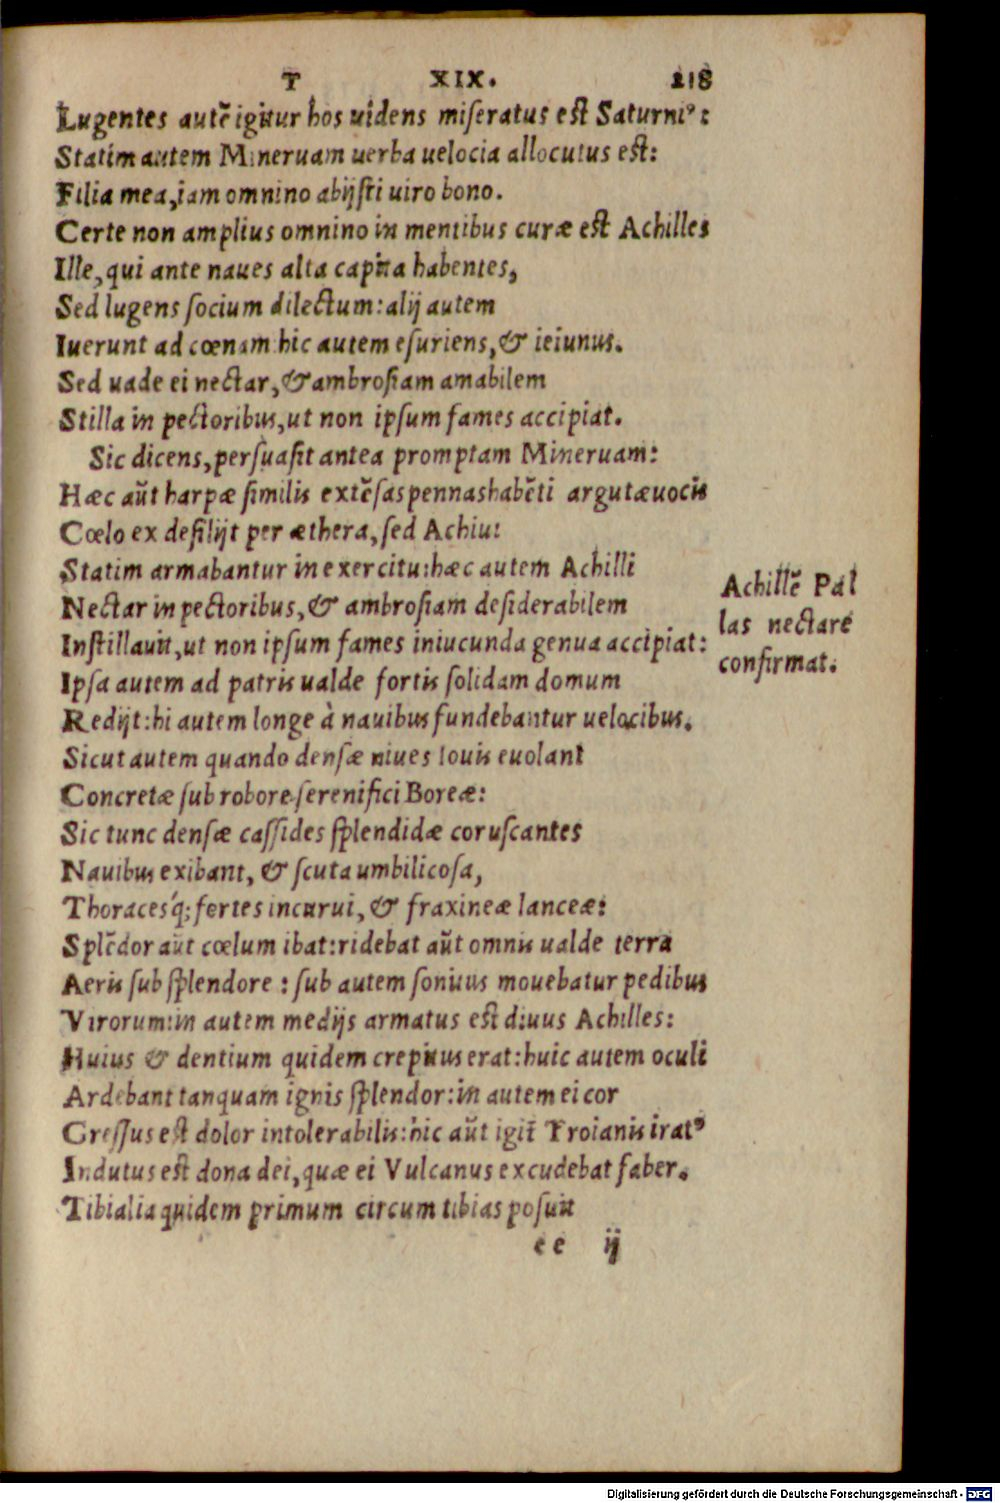 T XIX. 218
Lugentes autẽ igitur hos uidens miseratus est Saturniꝰ:
Statim autem Mineruam uerba uelocia allocutus est:
Filia mea, iam omnino abijsti uiro bono.
Certe non amplius omnino in mentibus curæ est Achilles
Ille, qui ante naues alta capita habentes,
Sed lugens socium dilectum: alij autem
Iuerunt ad cœnam hic autem esuriens, & ieiunus.
Sed uade ei nectar, & ambrosiam amabilem
Stilla in pectoribus, ut non ipsum fames accipiat.
Sic dicens, persuasit antea promptam Mineruam:
Hæc aũt harpæ similis extẽsas pennas habẽti argutæ uocis
Cœlo ex desilijt per æthera, sed Achiui
Statim armabantur in exercitu: hæc autem Achilli
Nectar in pectoribus, & ambrosiam desiderabilem
Instillauit, ut non ipsum fames iniucunda genua accipiat:
Ipsa autem ad patris ualde fortis solidam domum
Redijt: hi autem longe à nauibus fundebantur uelocibus.
Sicut autem quando densæ niues Iouis euolant
Concretæ sub robore serenifici Boreæ:
Sic tunc densæ cassides splendidæ coruscantes
Nauibus exibant, & scuta umbilicosa,
Thoracesq́; fortes incurui, & fraxineæ lanceæ:
Splẽdor aũt cœlum ibat: ridebat aũt omnis ualde terra
Aeris sub splendore : sub autem sonitus mouebatur pedibus
Virorum: in autem medijs armatus est diuus Achilles:
Huius & dentium quidem crepitus erat: huic autem oculi
Ardebant tanquam ignis splendor: in autem ei cor
Gressus est dolor intolerabilis: hic aũt igit̃ Troianis iratꝰ
Indutus est dona dei, quæ ei Vulcanus excudebat faber.
Tibialia quidem primum circum tibias posuit
ee ij
Achillẽ Pal
las nectare
confirmat.
Digitalisierung gefördert durch die Deutsche Forschungsgemeinschaft - DFG